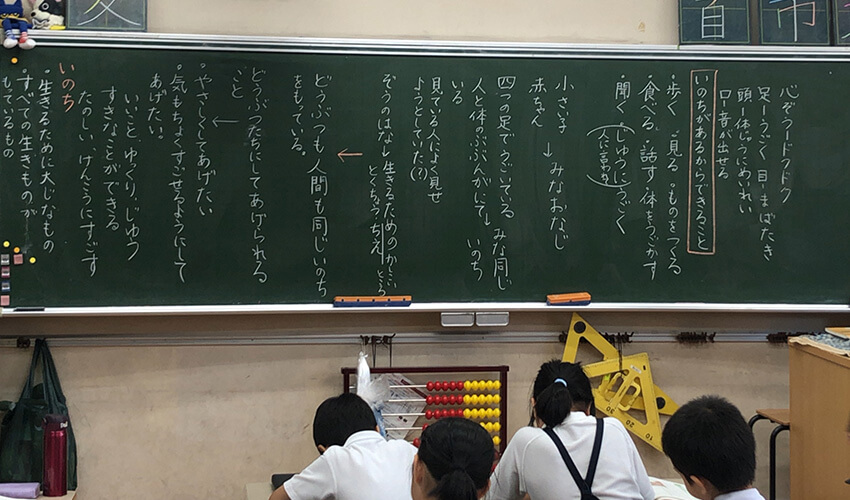 心ぞうードクドク
足ーうごく 目ーまばたき
頭ー体じゅうにめいれい
口ー音が出せる
いのちがあるからできること
・歩く ・見る ・ものをつくる
・食べる ・話す ・体をうごかす
・聞く ・じゆうにうごく
小さい子
赤ちゃん → みなおなじ
四つの足でうごいている みな同じ
人と体のぶぶんがにて いのち
いる
見ている人によく見せ
ようとしていた(?)
ぞうのはな 生きるためのかしこい
とくちょう ちえ ところ
どうぶつも人間も同じいのち
をもっている。
どうぶつたちにしてあげられる
こと
・やさしくしてあげたい
・気もちよくすごせるようにして
あげたい。
いいこと ゆっくり じゆう
すきなことができる
たのしい けんこうにすごす
いのち
・生きるために大じなもの
・すべての生きものが
もっているもの
首
市
20
10
20
10